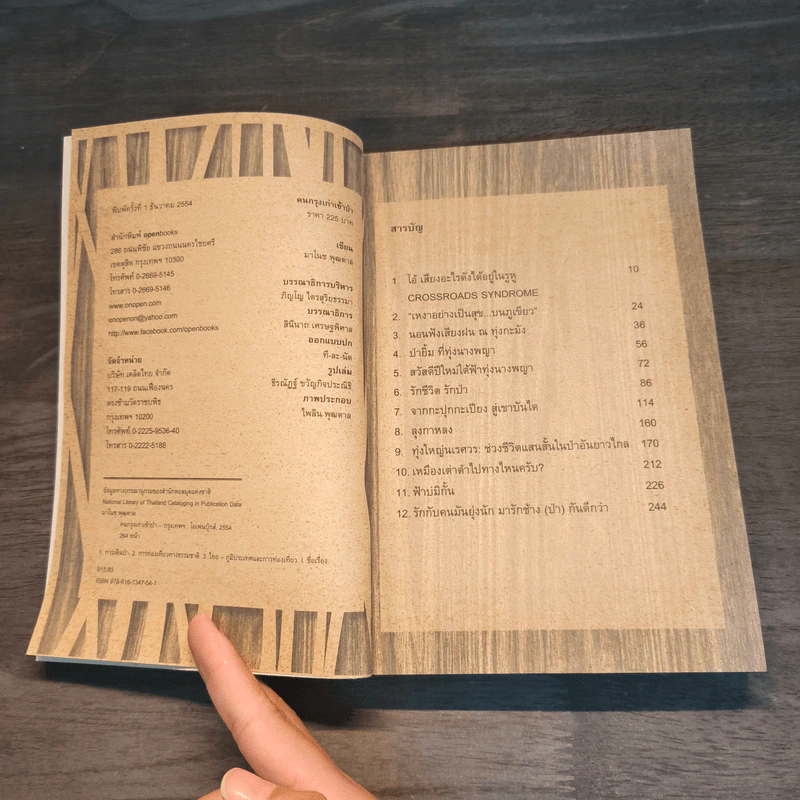 พิมพ์ครั้งที่ 1 ธันวาคม 2554
สำนักพิมพ์ openbooks
286 ถนนพิชัย แขวงถนนนครไชยศรี
เขตดุสิต กรุงเทพฯ 10300
โทรศัพท์ 0-2669-5145
โทรสาร 0-2669-5146
www.onopen.com
onopenon@yahoo.com
http://www.facebook.com/openbooks
จัดจำหน่าย
บริษัท เคล็ดไทย จำกัด
117-119 ถนนเฟื่องนคร
ตรงข้ามวัดราชบพิธ
กรุงเทพฯ 10200
โทรศัพท์ 0-2225-9536-40
โทรสาร 0-2222-5188
คนกรุงเก่าเข้าป่า
ราคา 225 บาท
เขียน
มาโนช พุฒตาล
บรรณาธิการบริหาร
ภิญโญ ไตรสุริยธรรมา
บรรณาธิการ
สินีนาถ เศรษฐพิศาล
ออกแบบปก
ที-ละ-นิด
รูปเล่ม
ธีรณัฏฐ์ ขวัญกิจประณิธิ
ภาพประกอบ
ไพลิน พุฒตาล
ข้อมูลทางบรรณานุกรมของสำนักหอสมุดแห่งชาติ
National Library of Thailand Cataloging in Publication Data
มาโนช พุฒตาล
คนกรุงเก่าเข้าป่า.-- กรุงเทพฯ : โอเพ่นบุ๊กส์, 2554
264 หน้า
1. การเดินป่า. 2. การท่องเที่ยวทางธรรมชาติ. 3. ไทย -- ภูมิประเทศและการท่องเที่ยว. I. ชื่อเรื่อง.
915.93
ISBN 978-616-7347-54-7
สารบัญ
1. โอ้ เสียงอะไรดังได้อยู่ในรูหู 10
CROSSROADS SYNDROME
2. “เหงาอย่างเป็นสุข...บนภูเขียว” 24
3. นอนฟังเสียงฝน ณ ทุ่งกะมัง 36
4. ป่ายิ้ม ที่ทุ่งนางพญา 56
5. สวัสดีปีใหม่ใต้ฟ้าทุ่งนางพญา 72
6. รักชีวิต รักป่า 86
7. จากกะปุกกะเปียง สู่เขาบันได 114
8. ลุงกาหลง 160
9. ทุ่งใหญ่นเรศวร: ช่วงชีวิตแสนสั้นในป่าอันยาวไกล 170
10. เหมืองเต่าดำไปทางไหนครับ? 212
11. ฟ้าบ่มีกั้น 226
12. รักกับคนมันยุ่งนัก มารักช้าง (ป่า) กันดีกว่า 244